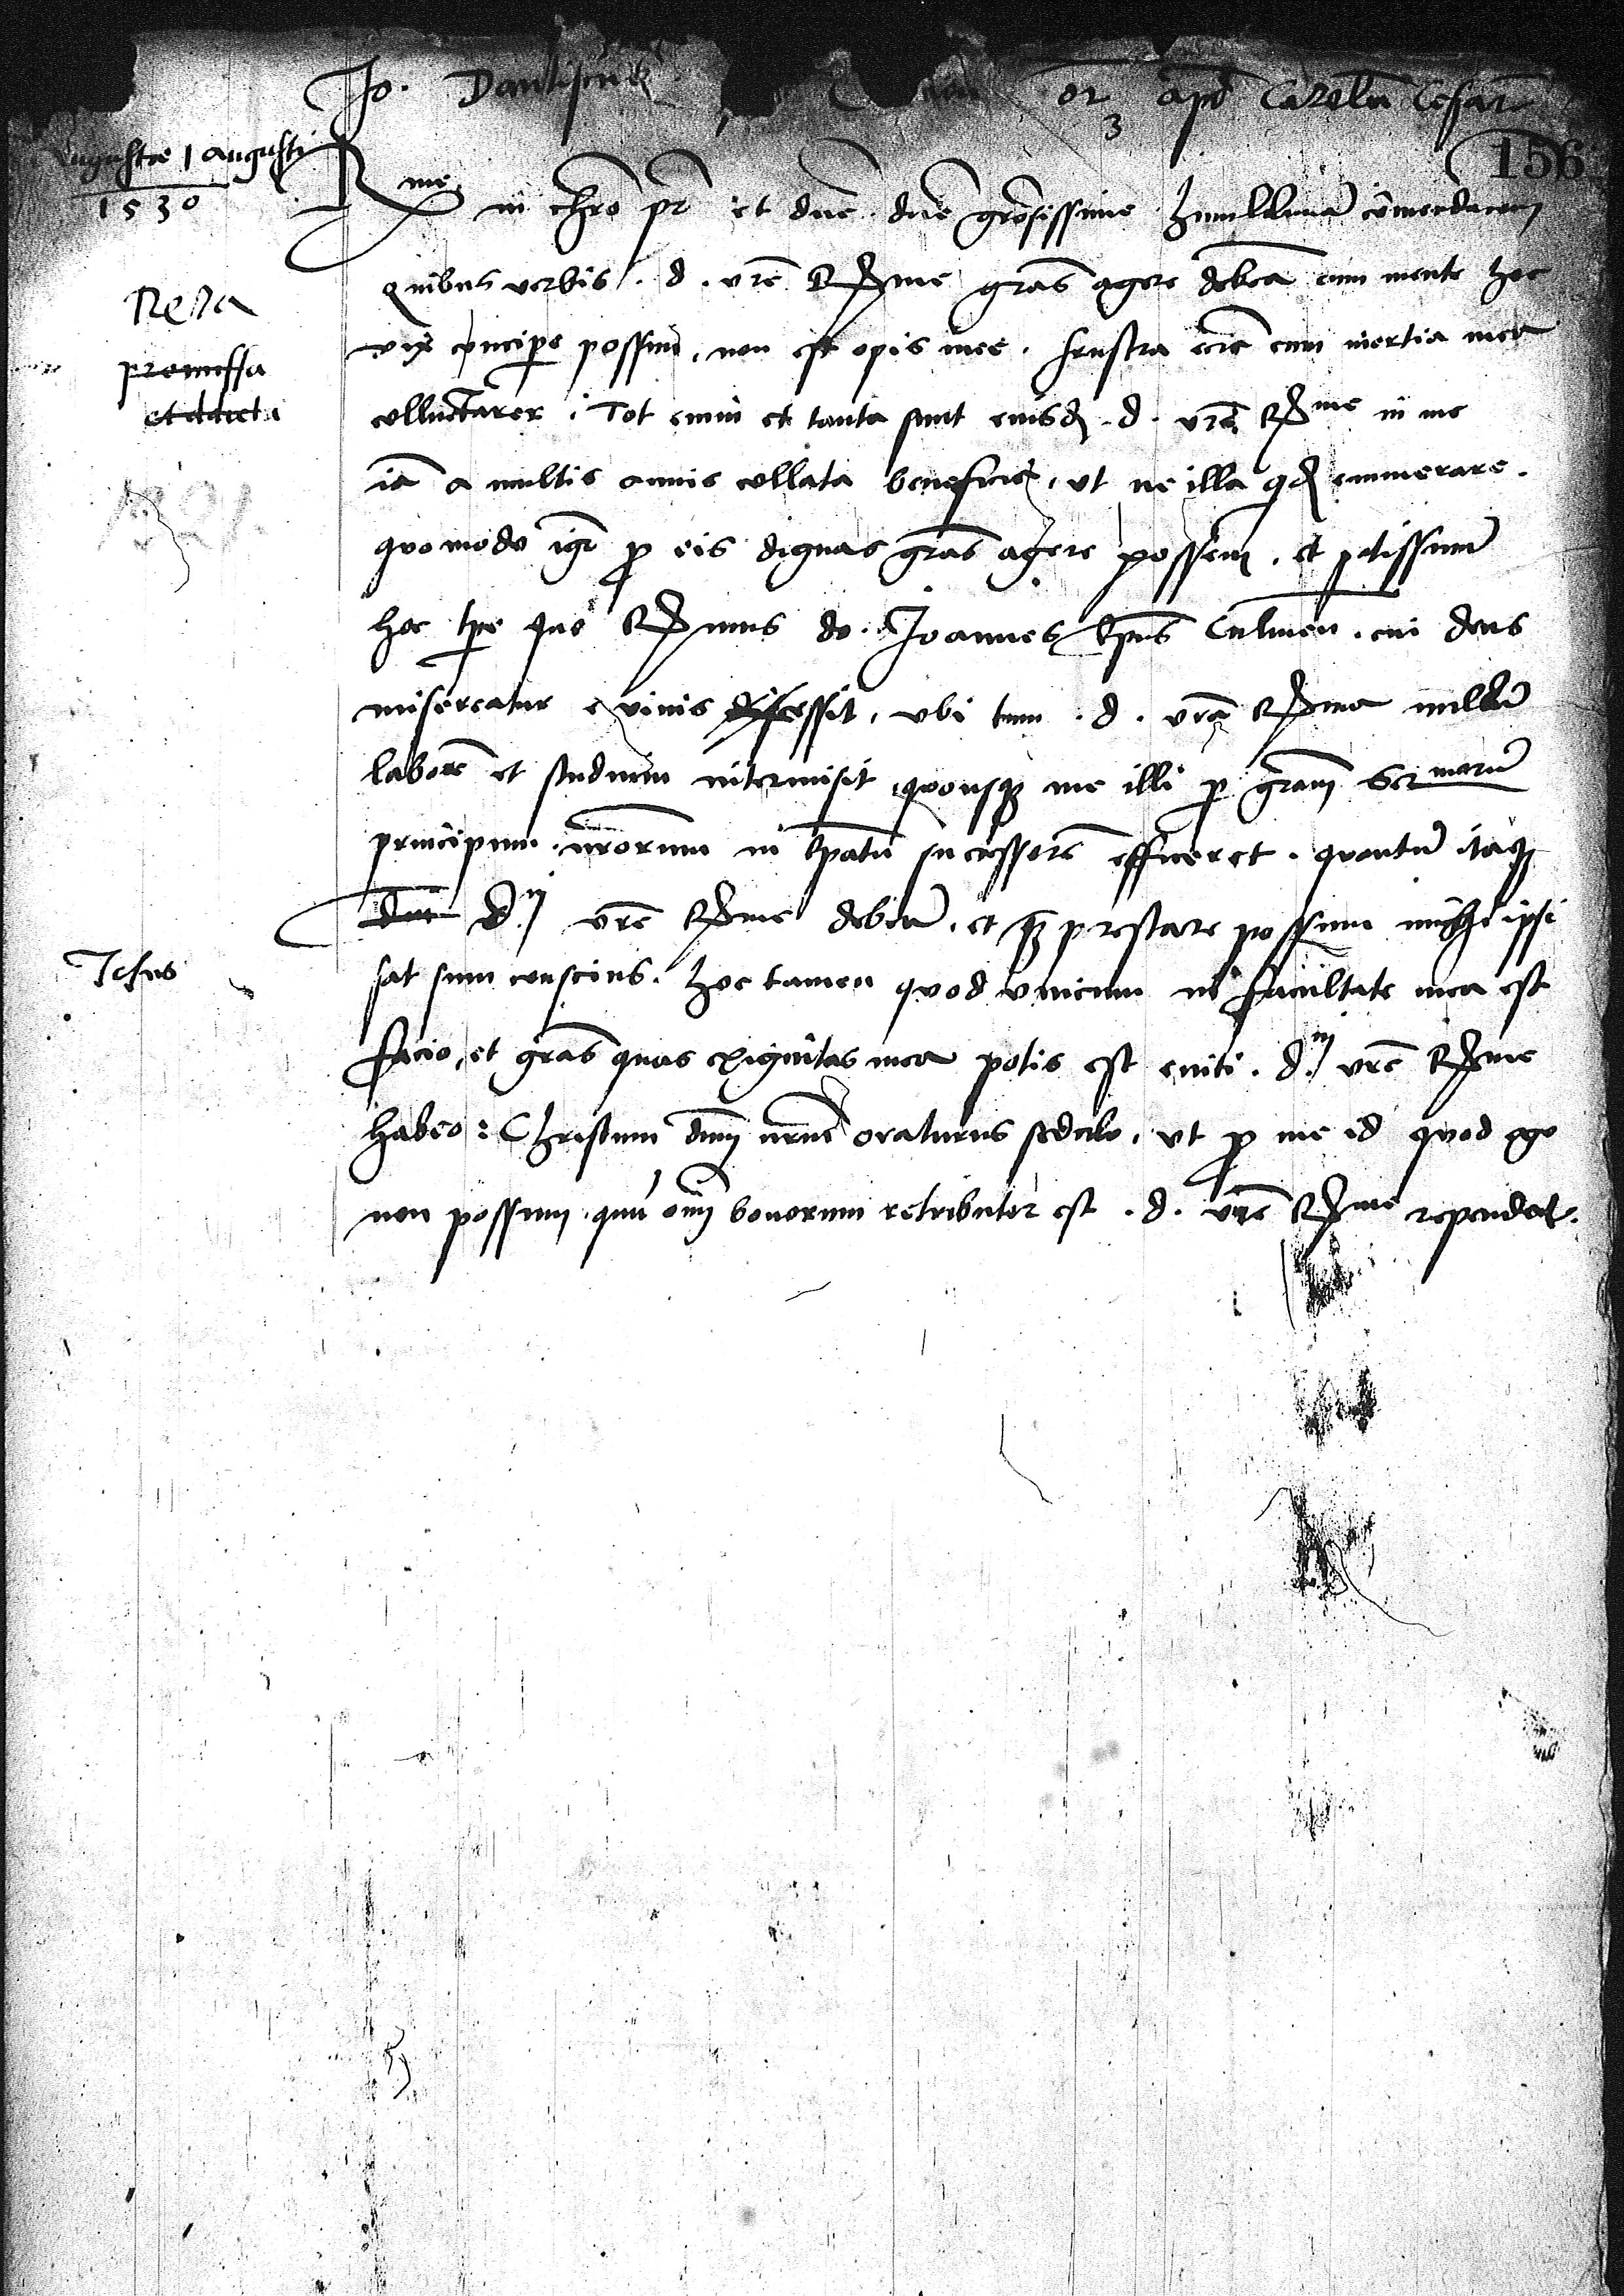 Jo. Dantiscus or apd Carolu Cesar
3
156
ugustæ 1 Augusti
1530
Rme in chro pr et dne dne grosissime humillima comendacom
Quibus verbis .d. vre Rme gras agere debea cum mente hoc
Resa
vix concipere possim, non est opis mee. frustra ecie cum inertia mea
premissa
et ddicta
colluctarer. Tot enim et tanta sunt eiusd .d. vre Rme in me
ia a multis annis collata beneficia, ut ne illa qd enumerare.
quomodo igr p eis dignas gras agere possem, et potissimu
hoc tpe quo Rmus do. Joannes Epus Culmen. cui deus
misereatur e vivis discessit, ubi tum .d. vra Rma nullu
labore et studium intermisit, quousq me illi p gram Ser maru
principum nrorum in Epatu successore efficeret. quantu itaq
dni d. vre Rme debea, et q prestare possum mihi ipsi
Jesus
sat sum conscius. hoc tamen quod unicum in facultate mea est
facio, et gras quas exiguitas mea potis est eniti. d. vre Rme
habeo: Christum dnm nrum oraturus sedulo, ut p me id quod ego
non possum, qui oim bonorum retributor est .d. vre Rme rependat.